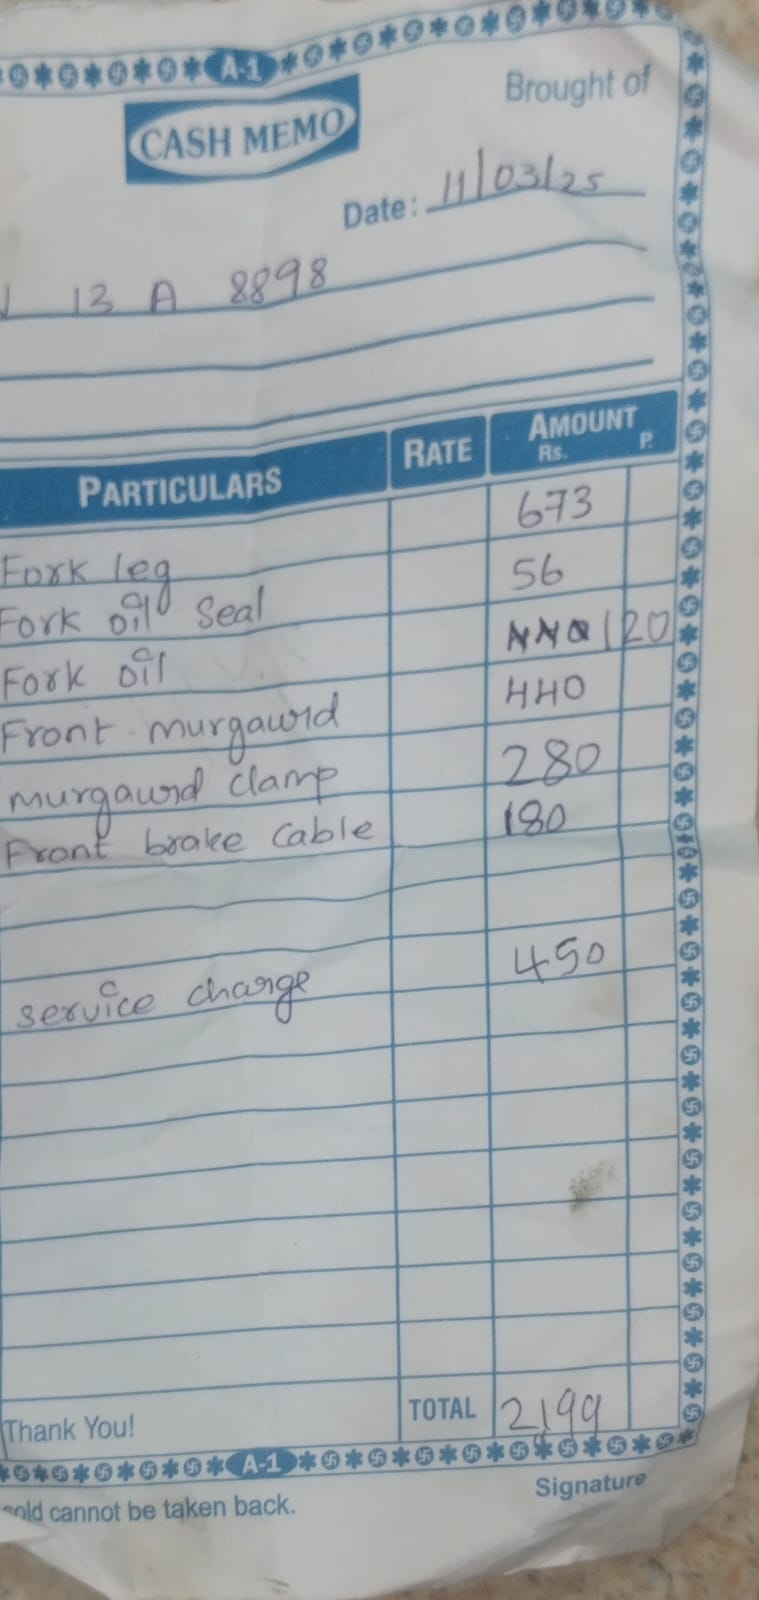 A-1
CASH MEMO
Brought of
Date: 11/03/25
13 A 8898
PARTICULARS RATE AMOUNT
Rs. P.
Fork leg 673
Fork oil Seal 56
Fork oil 120
Front murgaurd 440
murgaurd clamp 280
Front brake Cable 180
service charge 450
Thank You! TOTAL 2199
A-1
sold cannot be taken back. Signature